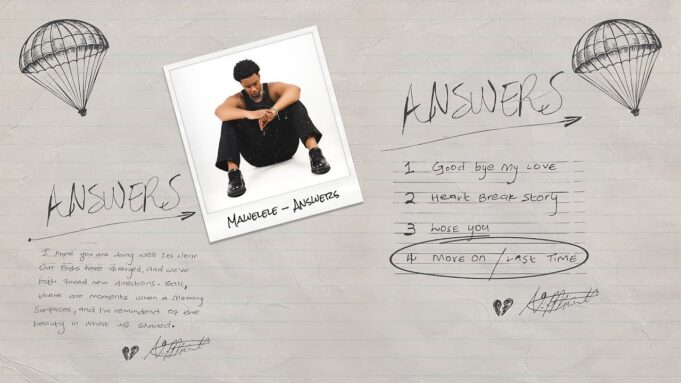 ANSWERS
I hope you are doing well Its clear
Our Paths have diverged, and we're
both found new directions. Still,
there are moments when a Memory
Surfaces, and I'm remindend of the
beauty in what we shared.
MAWELELE – ANSWERS
ANSWERS
1 Good bye my Love
2 Heart Break Story
3 Lose you
4 Move on / Last Time